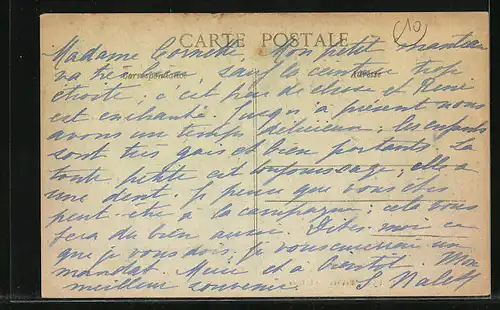 (10)
CARTE POSTALE
Madame Cornette, Mon petit manteau
va très bien, sauf la ceinture trop
Correspondance Adresse
étroite; c'est peu de chose et René
est enchanté. Jusqu'à présent nous
avons un temps délicieux; les enfants
sont très gais et bien portants. La
toute petite est toujours sage; elle a
une dent. Je pense que vous êtes
peut-être à la campagne; cela vous
fera du bien aussi. Dites-moi ce
que je vous dois, je vous enverrai un
mandat. Merci et à bientôt. Mon
meilleur souvenir. S.